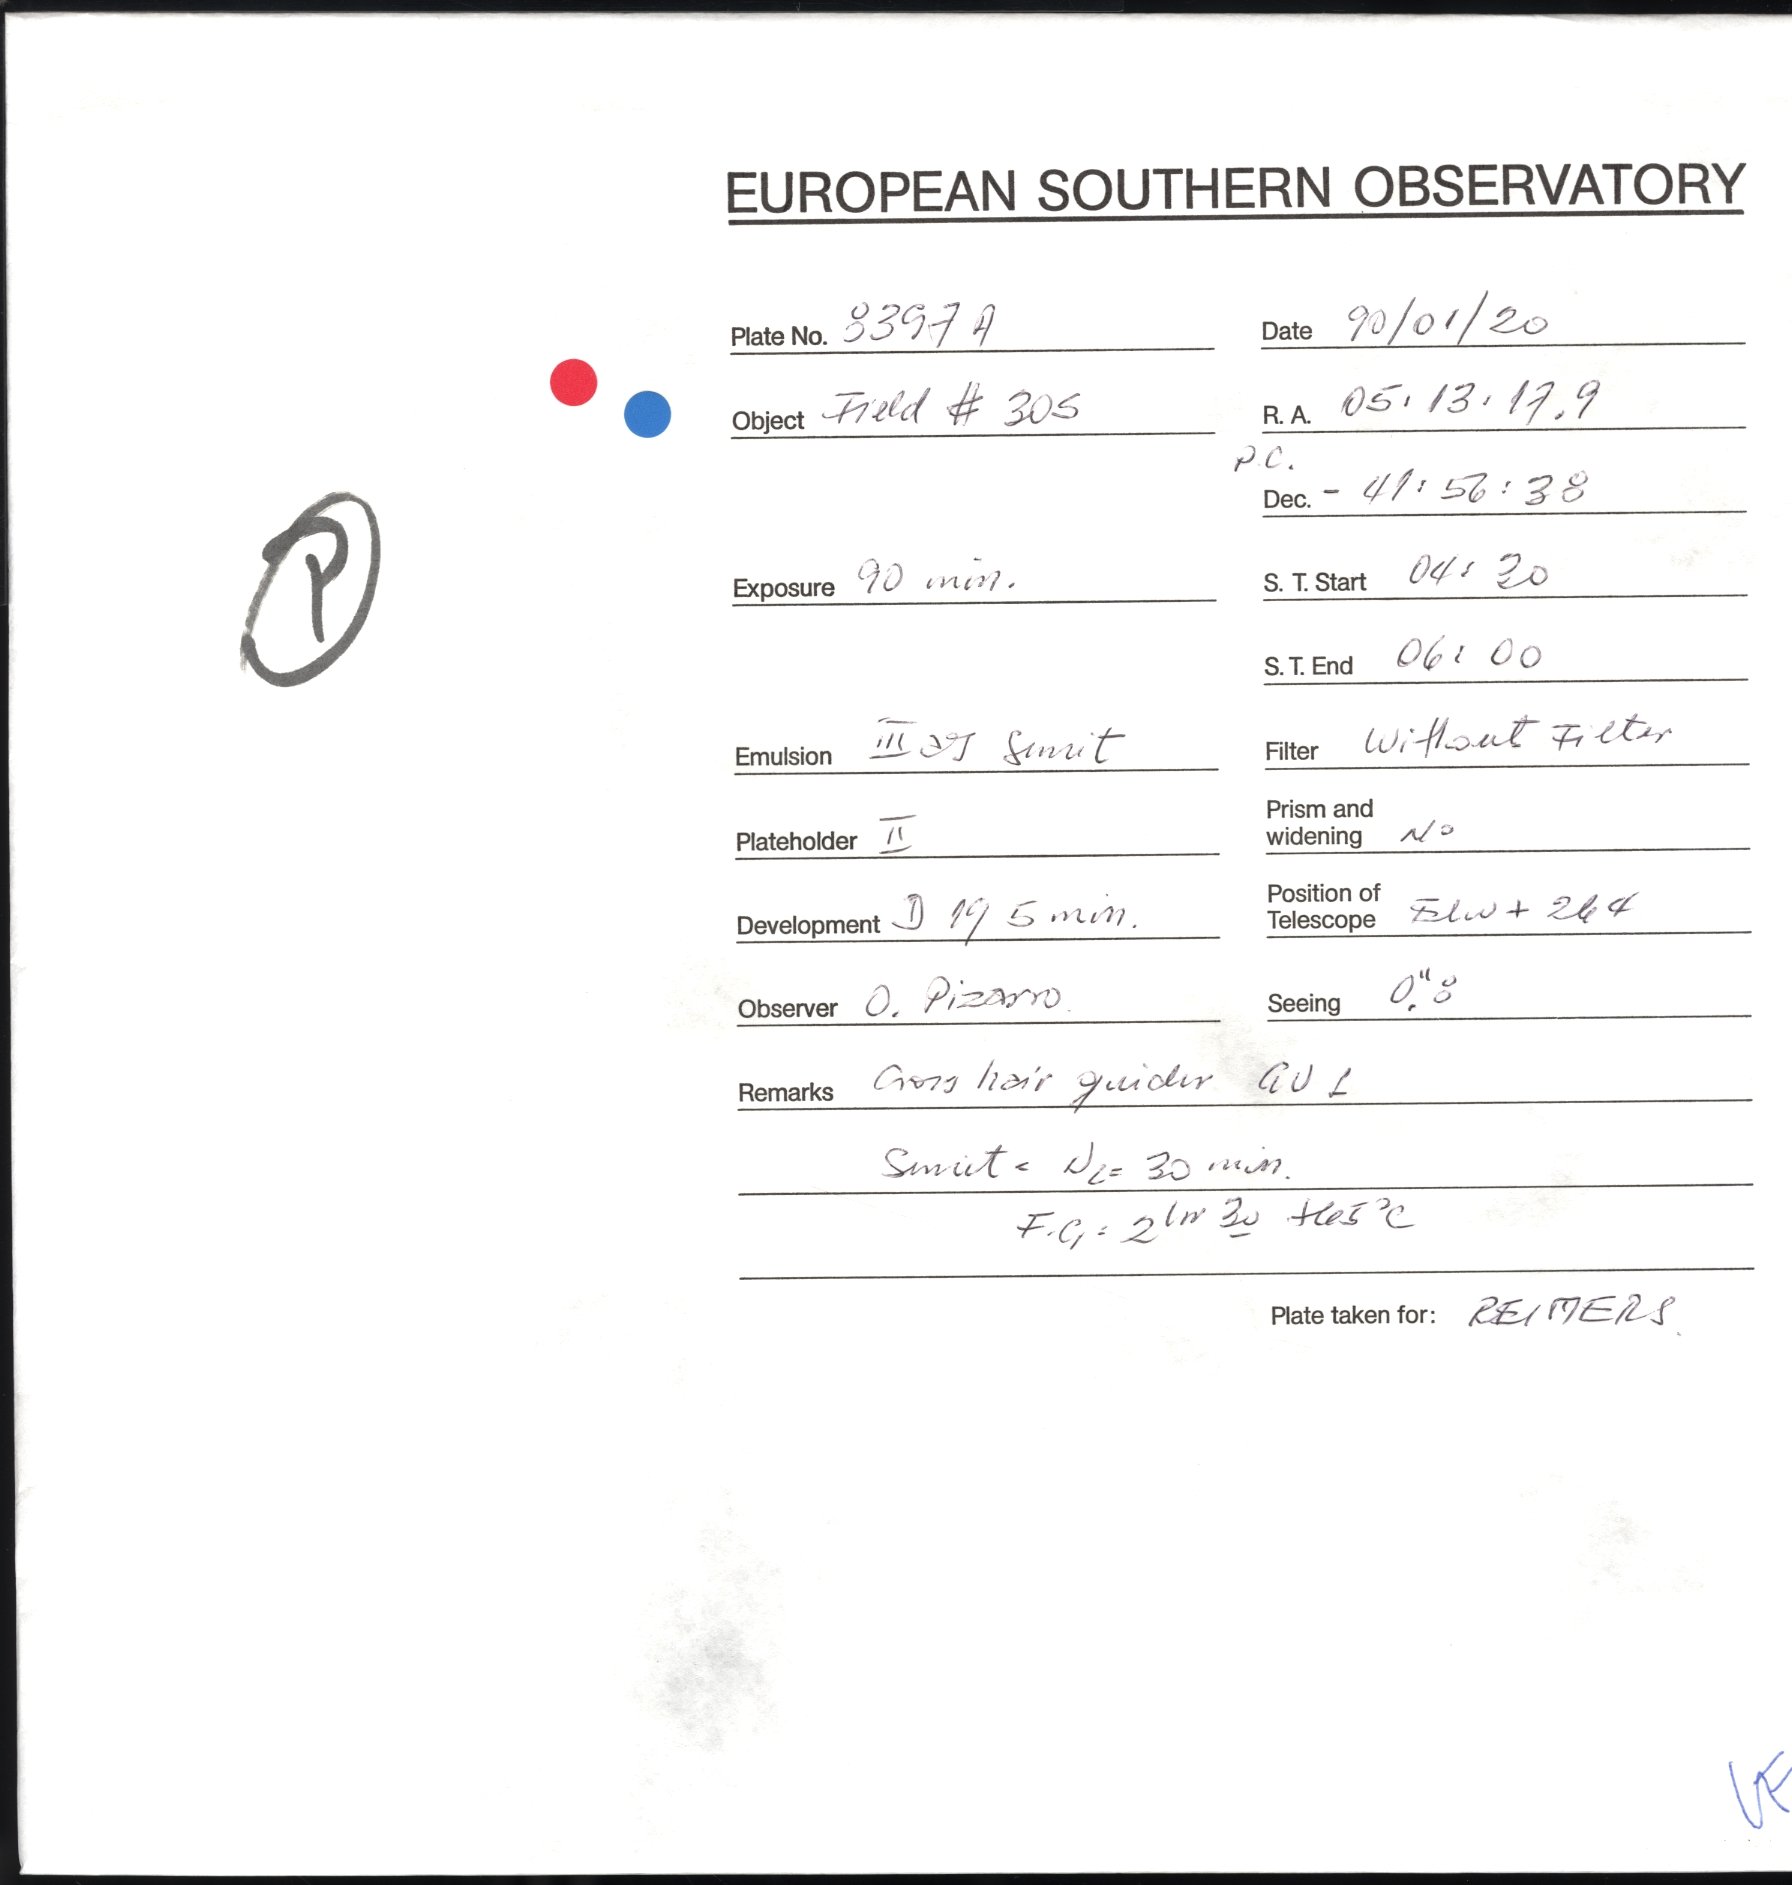 EUROPEAN SOUTHERN OBSERVATORY
Plate No. 8397 A Date 90/01/20
Object Field # 305 R. A. 05:13:17.9
P.C.
Dec. - 41:56:38
Exposure 90 min. S. T. Start 04:30
S. T. End 06:00
P
Emulsion III aJ Sensit Filter Without Filter
Plateholder II Prism and widening No
Development D 19 5 min. Position of Telescope
Observer O. Pizarro. Seeing 0."8
Remarks Cross hair guider GV 1
Sensit = N2= 30 min.
F.G.: 2 hr 30 +65°C
Plate taken for: REIMERS.